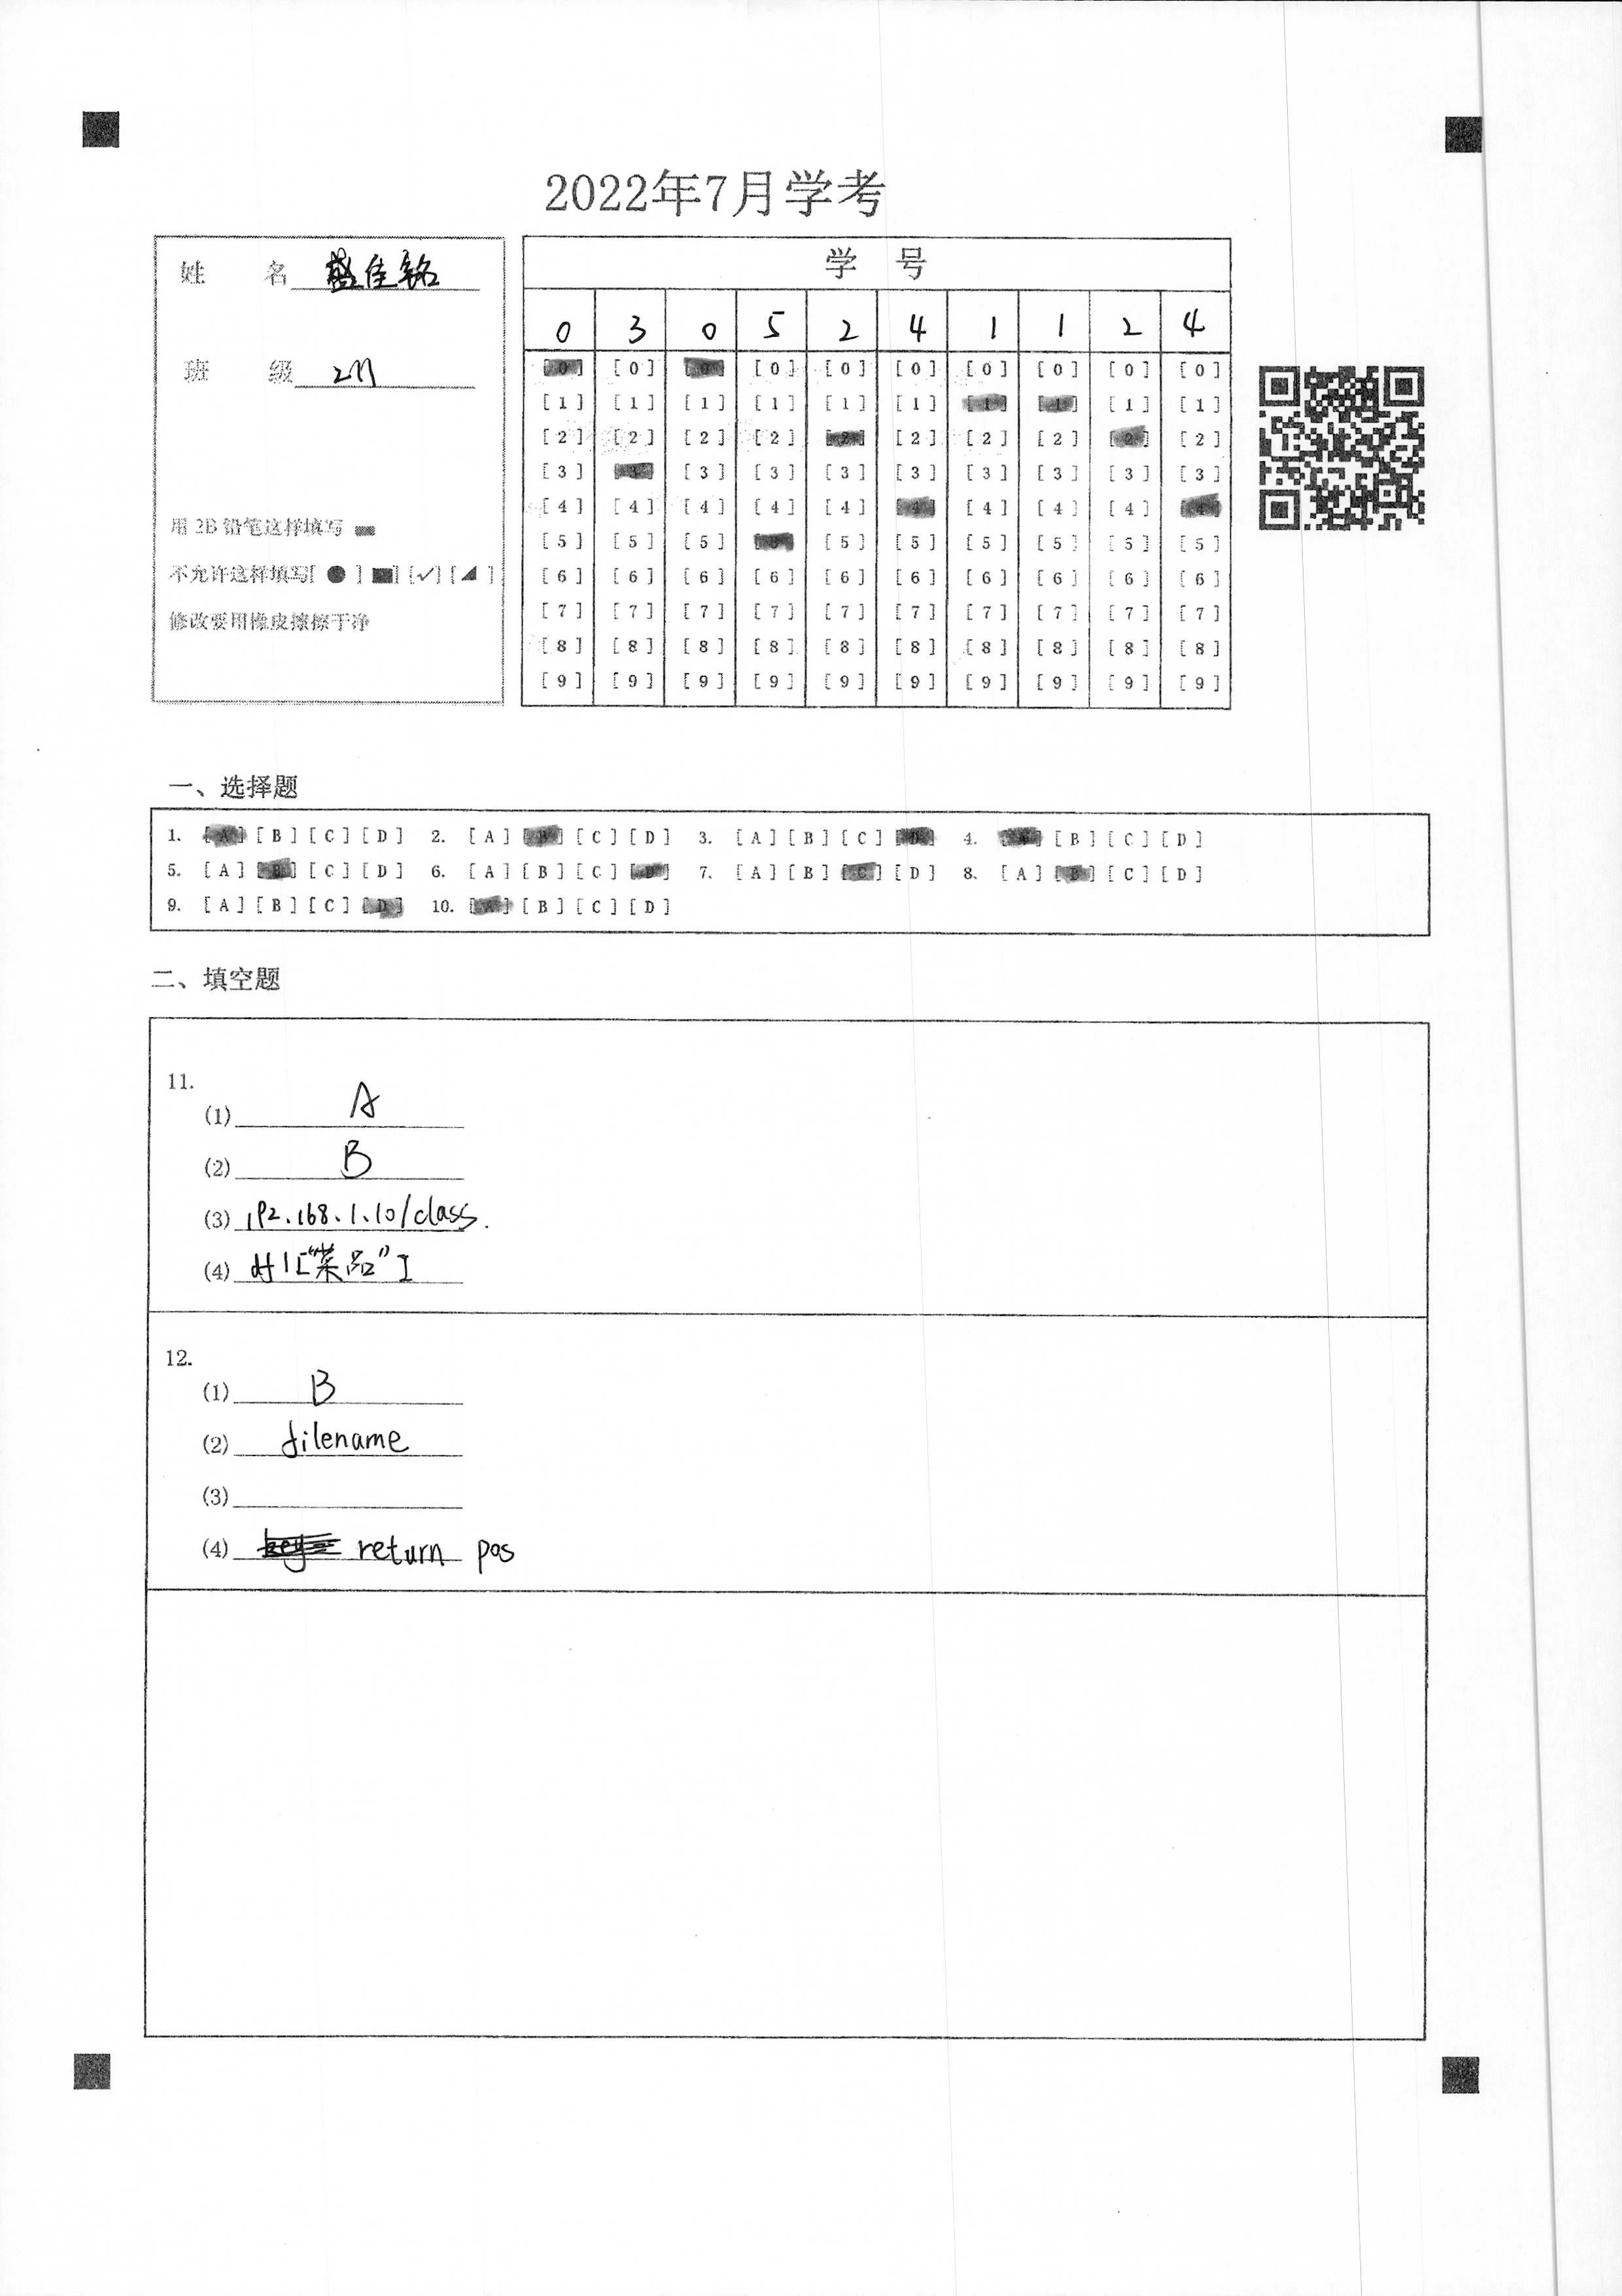 2022年7月学考
姓 名 盛佳铭
班 级 211
用 2B 铅笔这样填写
不允许这样填写[ ● ] ■] [✓] [◢ ]
修改要用橡皮擦擦干净
学 号
0 3 0 5 2 4 1 1 2 4
[0] [0] [0] [0] [0] [0] [0] [0] [0] [0]
[1] [1] [1] [1] [1] [1] [1] [1] [1] [1]
[2] [2] [2] [2] [2] [2] [2] [2] [2] [2]
[3] [3] [3] [3] [3] [3] [3] [3] [3] [3]
[4] [4] [4] [4] [4] [4] [4] [4] [4] [4]
[5] [5] [5] [5] [5] [5] [5] [5] [5] [5]
[6] [6] [6] [6] [6] [6] [6] [6] [6] [6]
[7] [7] [7] [7] [7] [7] [7] [7] [7] [7]
[8] [8] [8] [8] [8] [8] [8] [8] [8] [8]
[9] [9] [9] [9] [9] [9] [9] [9] [9] [9]
一、选择题
1. [A] [B] [C] [D] 2. [A] [B] [C] [D] 3. [A] [B] [C] [D] 4. [A] [B] [C] [D]
5. [A] [B] [C] [D] 6. [A] [B] [C] [D] 7. [A] [B] [C] [D] 8. [A] [B] [C] [D]
9. [A] [B] [C] [D] 10. [A] [B] [C] [D]
二、填空题
11.
(1) A
(2) B
(3) 192.168.1.10/class.
(4) df1["菜品"]
12.
(1) B
(2) filename
(3)
(4) return pos